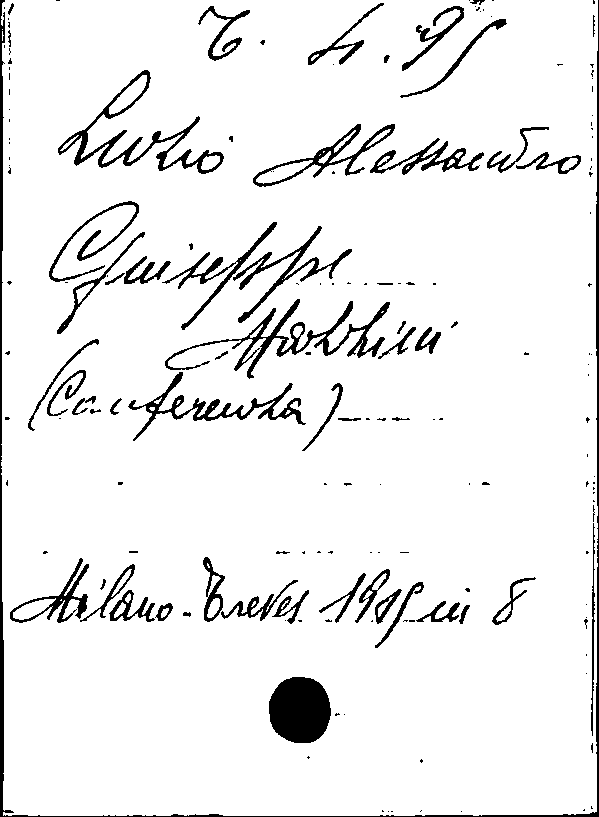 6. 4. 95
Luzio Alessandro
Giuseppe
Mazzini
(Conferenza)
Milano - Treves 1905 in 8